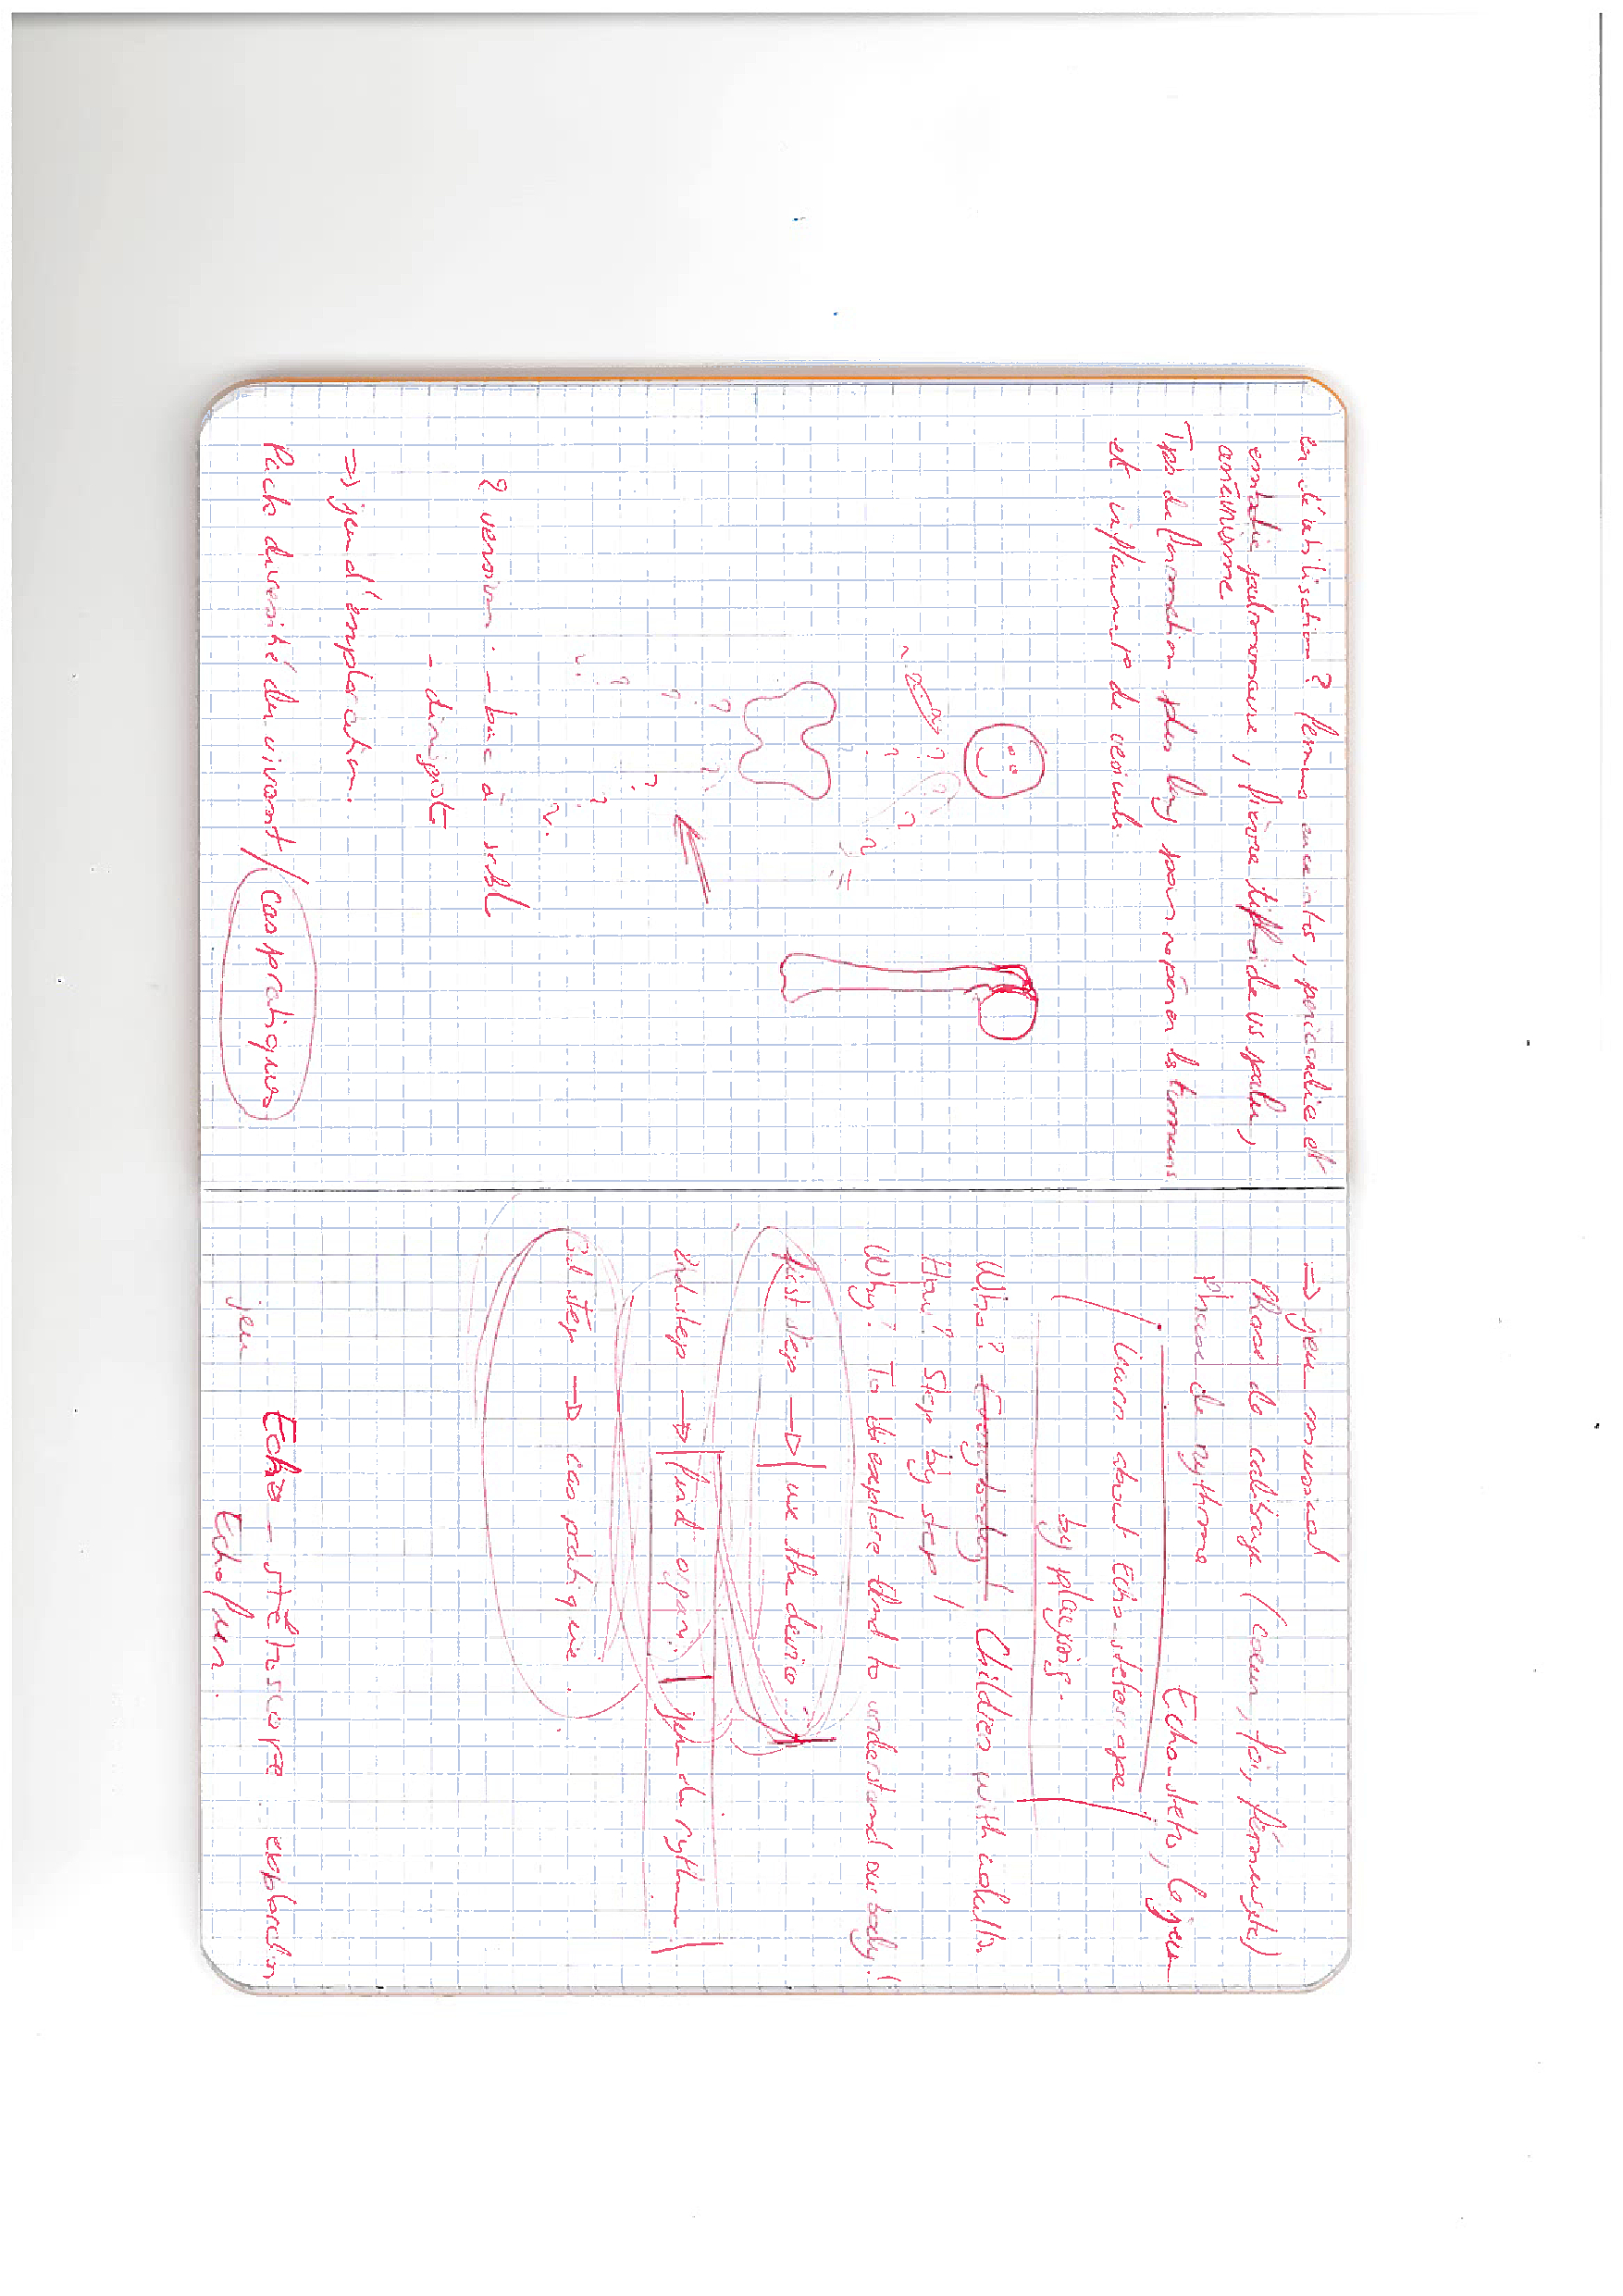 utilisation ? femmes enceintes, péricardite et
embolie pulmonaire, fièvre tiphoide vs palu,
anévrisme
Type de formation plus long pour repérer les tumeurs
et inflammato de vésicule
2 version : - bac à sable
- dirigiste
=> jeu d'exploration.
Pack diversité du vivant / cas pratiques
=> jeu musical
Phase de calibrage (coeur, foi, fémurs)
Phase de rythme
Echo-stéto, le jeu
learn about Echo-stetoscope
by playing.
Who? Everybody! Children with adults
How? Step by step!
Why? To explore and to understand our body!!
first step -> use the device
2nd step -> find organ. jeu de rythme
3rd step -> cas pratique.
Echo - stéthoscope exploration
jeu Echo fun.